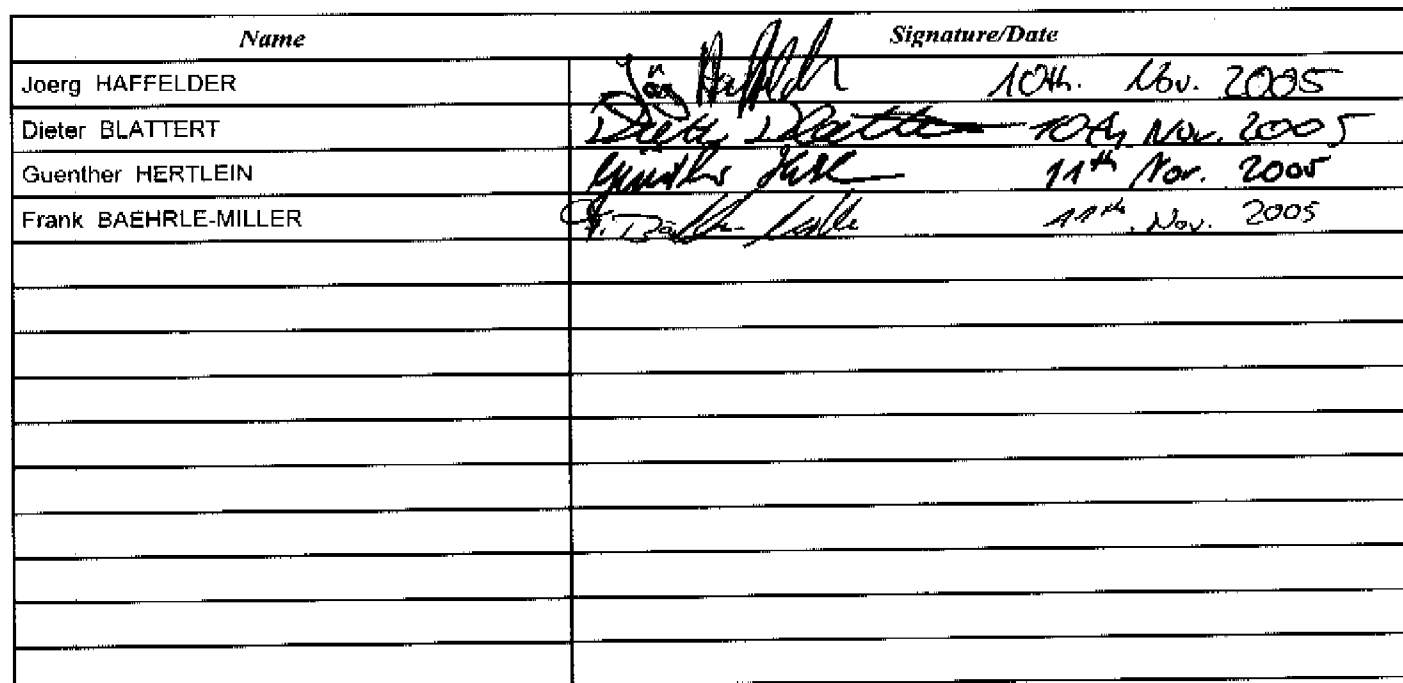 Name Signature/Date
Joerg HAFFELDER Jörg Haffelder 10th. Nov. 2005
Dieter BLATTERT Dieter Blatter 10th Nov. 2005
Guenther HERTLEIN Günther 11th Nov. 2005
Frank BAEHRLE-MILLER F. 11th. Nov. 2005